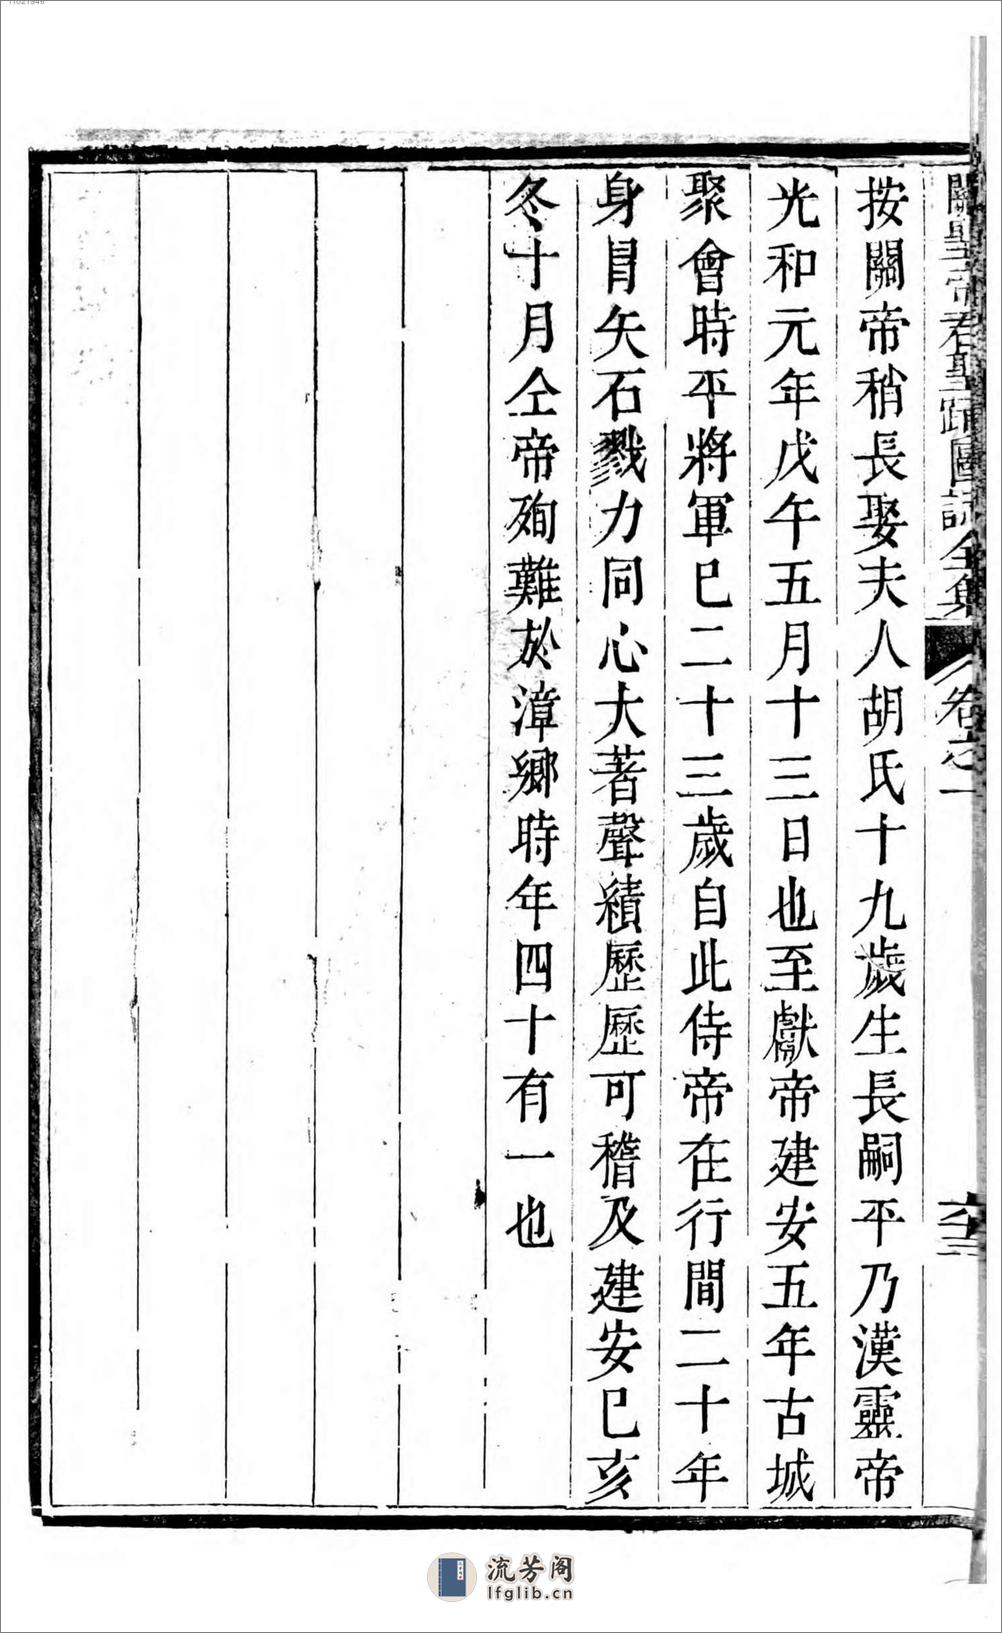 11021948
關聖帝君聖蹟圖誌全集 卷之一 六十二
按關帝稍長娶夫人胡氏十九歲生長嗣平乃漢靈帝
光和元年戊午五月十三日也至獻帝建安五年古城
聚會時平將軍已二十三歲自此侍帝在行間二十年
身冐矢石戮力同心大著聲績歷歷可稽及建安已亥
冬十月仝帝殉難於漳鄉時年四十有一也
流芳阁
lfglib.cn